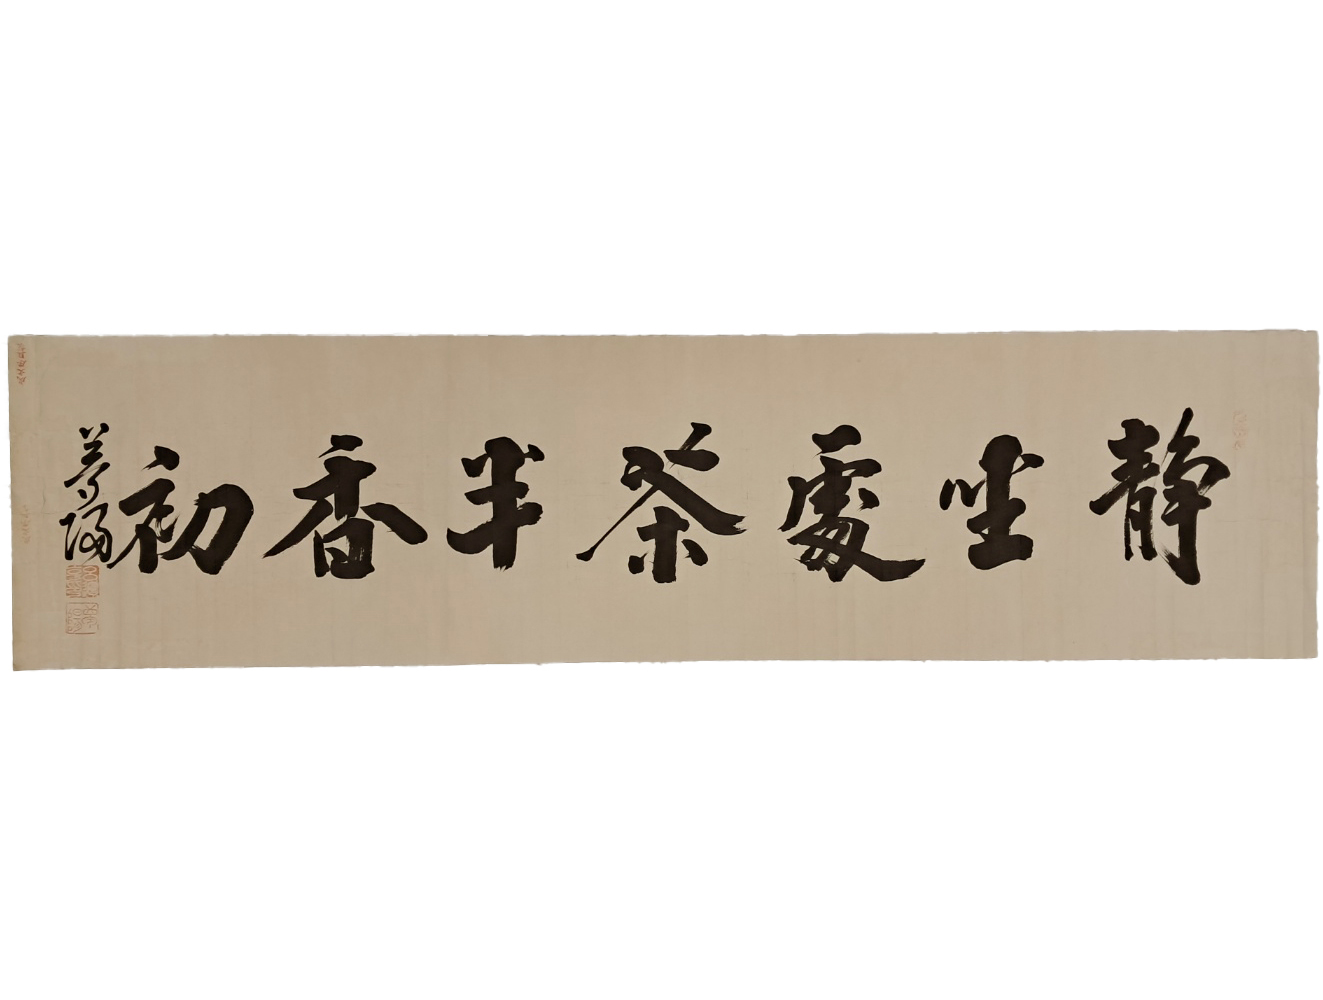 靜坐處茶半香初